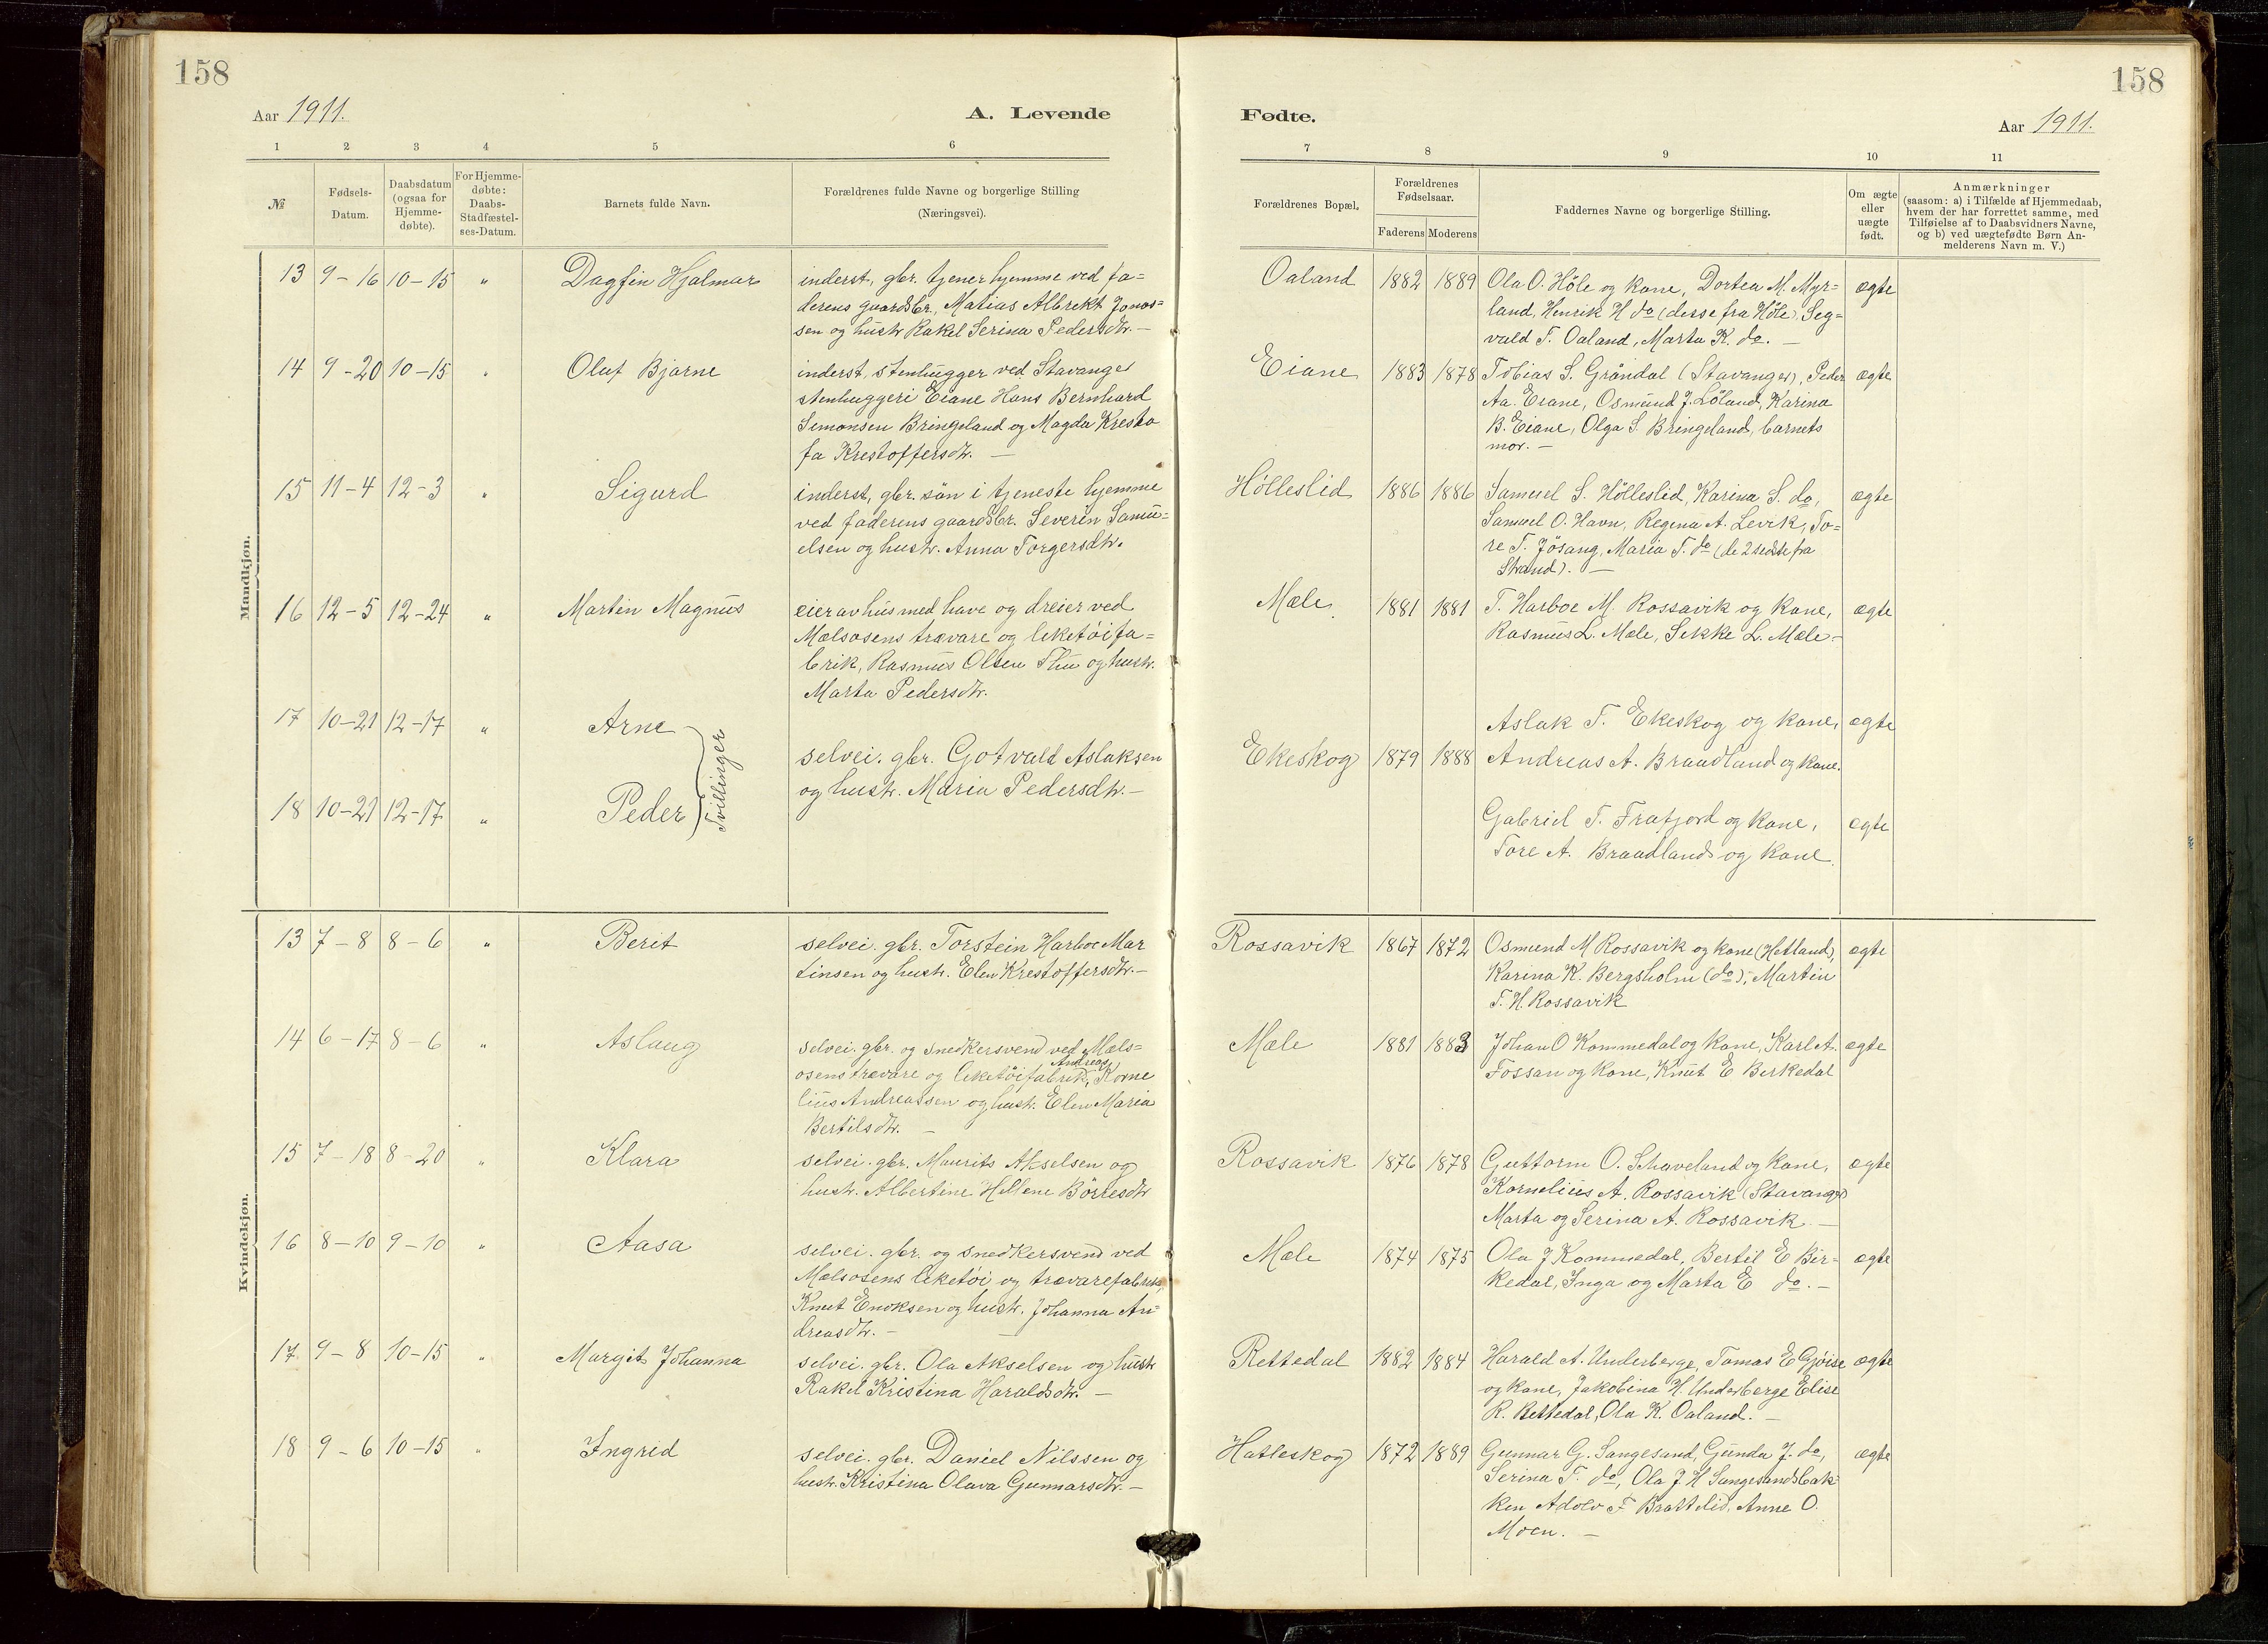 158
158
Aar 1911.
A. Levende
Fødte.
Aar 1911.
1 2 3 4 5 6 7 8 9 10 11
№
Fødsels-
Datum.
Daabsdatum
(ogsaa for
Hjemme-
døbte).
For Hjemme-
døbte:
Daabs-
Stadfæstel-
ses-Datum.
Barnets fulde Navn.
Forældrenes fulde Navne og borgerlige Stilling
(Næringsvei).
Forældrenes Bopæl.
Forældrenes
Fødselsaar.
Faderens Moderens
Faddernes Navne og borgerlige Stilling.
Om ægte
eller
uægte
født.
Anmærkninger
(saasom: a) i Tilfælde af Hjemmedaab,
hvem der har forrettet samme, med
Tilføielse af to Daabsvidners Navne,
og b) ved uægtefødte Børn An-
melderens Navn m. V.)
Mandkjøn.
13 9-16 10-15 " Dagfin Hjalmar
inderst, gbr. tjener hjemme ved fa-
derens gaardsbr., Matias Albrekt Jonas-
sen og hustr. Rakel Serina Pedersdtr. -
Oaland 1882 1889
Ola O. Høle og kone, Dortea M. Myr-
land, Henrik H do (desse fra Høle), Seg-
vald T. Oaland, Marta K. do. -
ægte
14 9-20 10-15 " Oluf Bjarne
inderst, stenhugger ved Stavanger
stenhuggeri Eiane Hans Bernhard
Simonsen Bringeland og Magda Kresto
fa Krestoffersdtr. -
Eiane 1883 1878
Tobias S. Gröndal (Stavanger), Peder
Aa. Eiane, Osmund J. Löland, Karina
B. Eiane, Olga S. Bringeland, barnets
mor. -
ægte
15 11-4 12-3 " Sigurd
inderst, gbr. sön i tjeneste hjemme
ved faderens gaardsbr. Severin Samu-
elsen og hustr. Anna Torgersdtr.
Hölleslid 1886 1886
Samuel S. Hölleslid, Karina S. do,
Samuel O. Havn, Regina A. Levik, To-
re T. Jösang, Maria T. do (de 2 sidste fra
Strand). -
ægte
16 12-5 12-24 " Martin Magnus
eier av hus med have og dreier ved
Mælsosens trævare og leketöifa-
brik, Rasmus Olsen Thu og hustr.
Marta Pedersdtr.
Mæle 1881 1881
T. Harboe M. Rossavik og kone,
Rasmus L. Mæle, Sikke L. Mæle -
ægte
17 10-21 12-17 " Arne
18 10-21 12-17 " Peder
Tvillinger
selvei. gbr. Gotvald Aslaksen
og hustr. Maria Pedersdtr. -
Ekeskog 1879 1888
Aslak T. Ekeskog og kone,
Andreas A. Braadland og kone.
ægte
Gabriel T. Frafjord og kone,
Tore A. Braadland og kone.
ægte
Kvindekjøn.
13 7-8 8-6 " Berit
selvei. gbr. Torstein Harboe Mar
tinsen og hustr. Elen Krestoffersdtr. -
Rossavik 1867 1872
Osmund M Rossavik og kone (Hetland),
Karina K. Bergsholm (do), Martin
T. H. Rossavik
ægte
14 6-17 8-6 " Aslaug
selvei. gbr. og snedkersvend ved Mæls-
osens trævare og leketöifabrik, Andreas Korne
lius Andreassen og hustr. Elen Maria
Bertilsdtr. -
Mæle 1881 1883
Johan O Kommedal og kone, Karl A.
Fossan og kone, Knut E Berkedal
ægte
15 7-18 8-20 " Klara
selvei. gbr. Maurits Akselsen og
hustr. Albertine Hellene Börresdtr
Rossavik 1876 1878
Guttorm O. Skaveland og kone,
Kornelius A. Rossavik (Stavanger)
Marta og Serina A. Rossavik. -
ægte
16 8-10 9-10 " Aasa
selvei. gbr. og snedkersvend ved
Mælsosens leketöi og trævarefabrik,
Knut Enoksen og hustr. Johanna An-
dreasdtr. -
Mæle 1874 1875
Ola J Kommedal, Bertil E Bir-
kedal, Inga og Marta E do. -
ægte
17 9-8 10-15 " Margit Johanna
selvei. gbr. Ola Akselsen og hustr
Rakel Kristina Haraldsdtr. -
Rettedal 1882 1884
Harald A. Underberge, Tomas E Gjöise
og kone, Jakobina H. Underberge Elise
R. Rettedal, Ola K. Oaland. -
ægte
18 9-6 10-15 " Ingrid
selvei. gbr. Daniel Nilssen og
hustr. Kristina Olava Gunnarsdtr. -
Hatleskog 1872 1889
Gunnar G. Sangesand, Gunda J. do,
Serina T. do, Ola J H Sangesandsbak-
ken Adolv F Brattelid, Anne O.
Moen. -
ægte